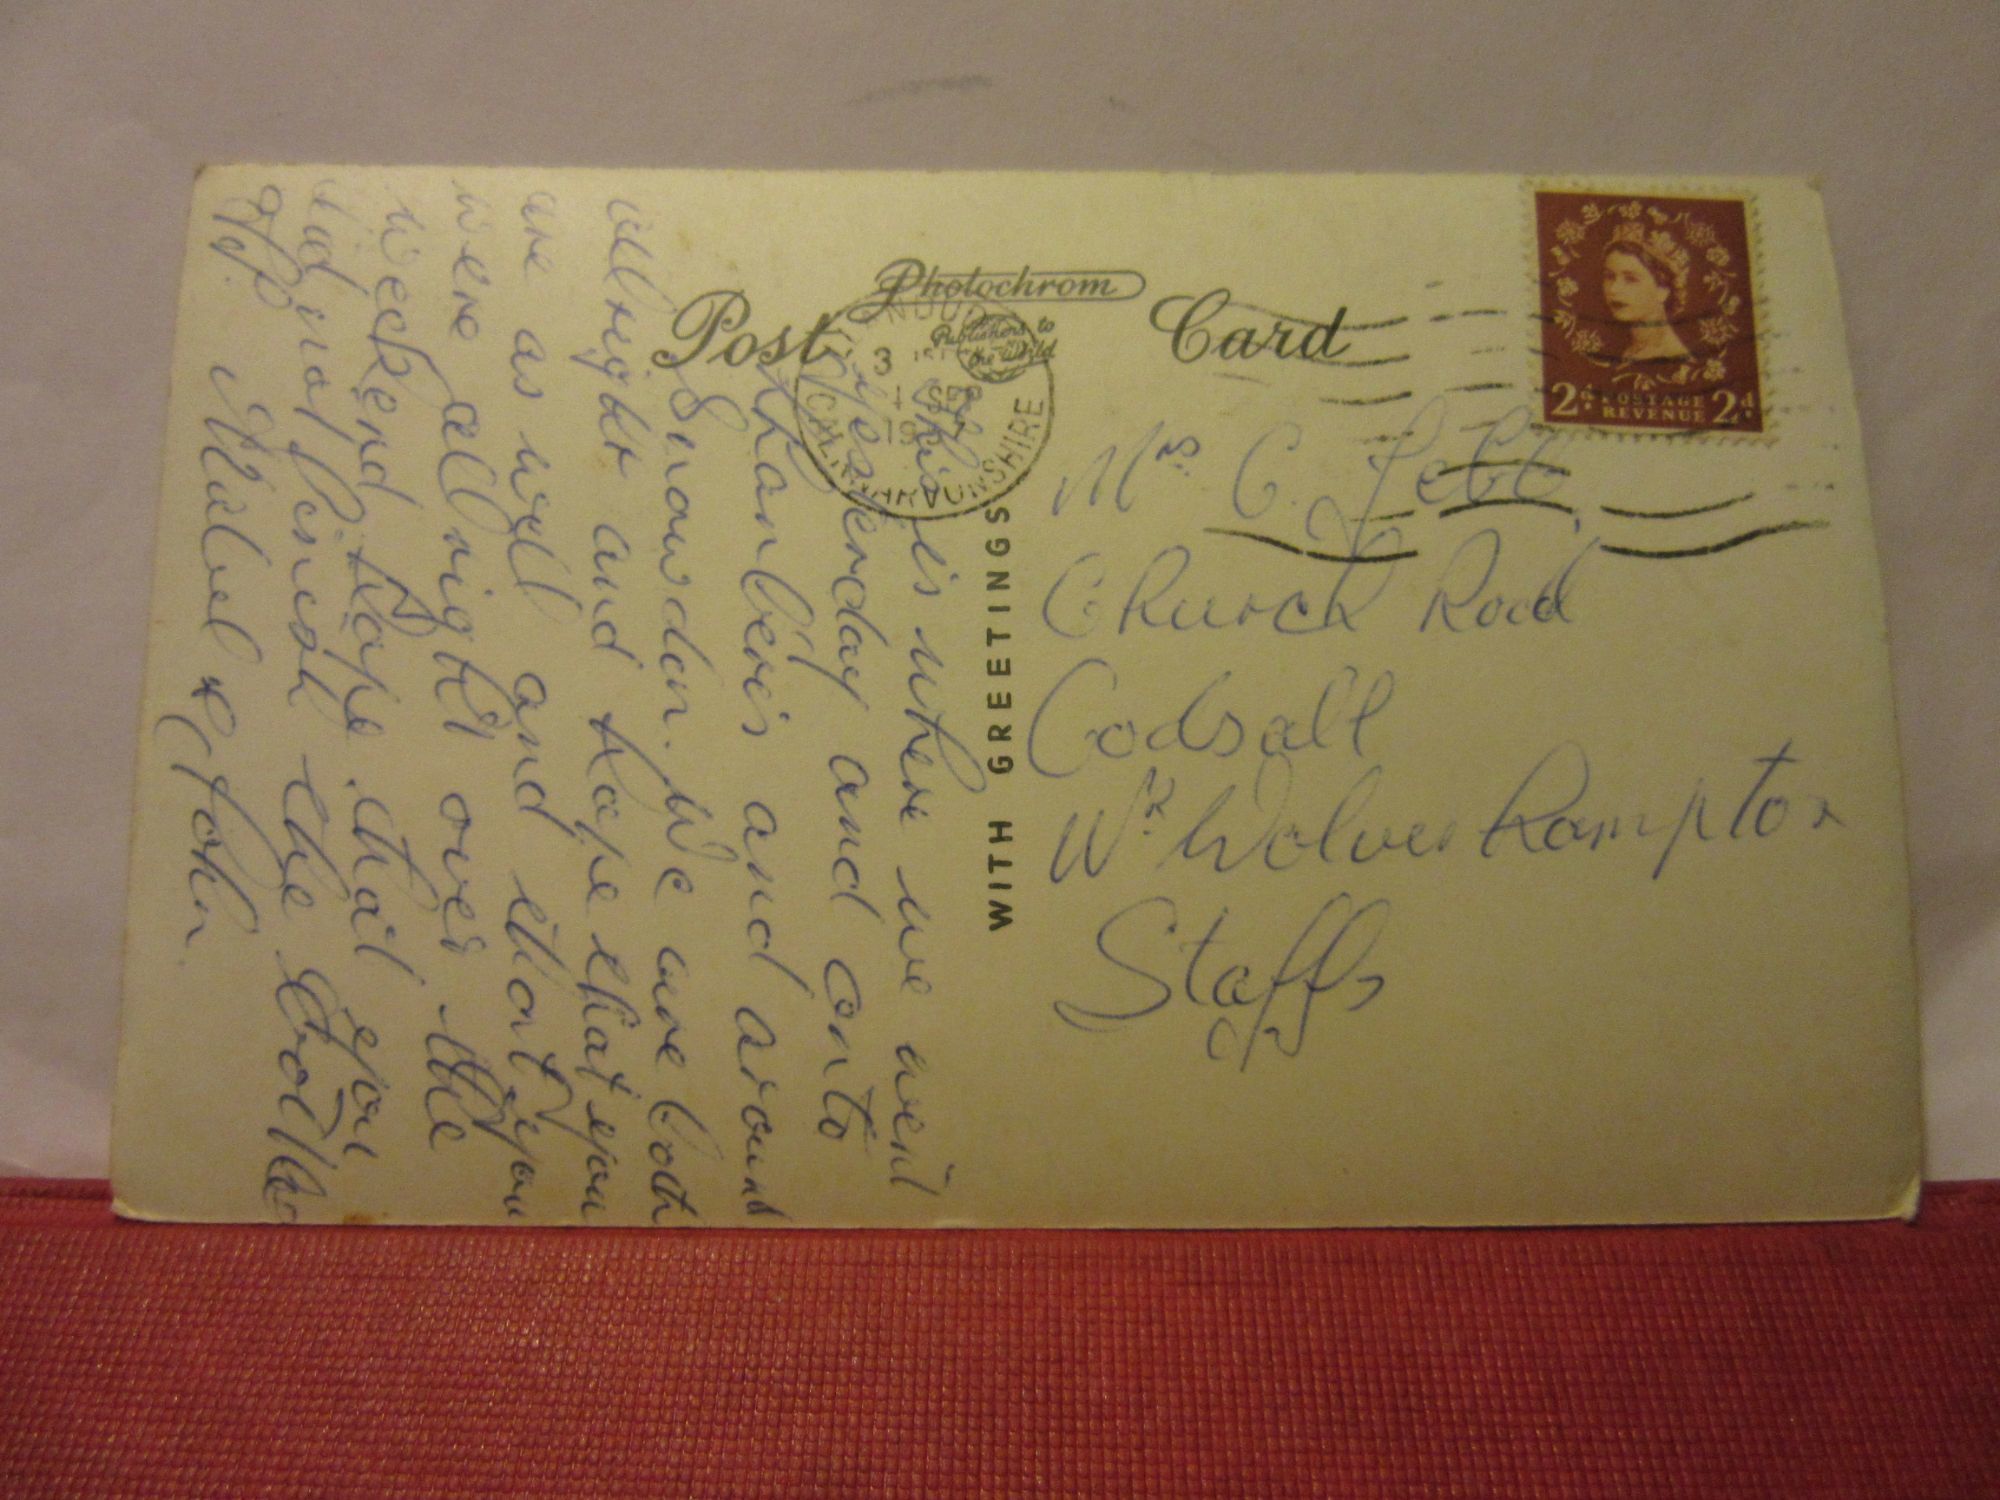 Photochrom
Post Card
Publishers to
the World
3
1 SEP
19
CAERNARVONSHIRE
2d POSTAGE REVENUE 2d
WITH GREETINGS
Mrs C. Jebb
Church Road
Codsall
Nr Wolverhampton
Staffs
This is where we went
yesterday and onto
Llanberis and around
Snowdon. We are both
allright and hope that you
are as well and that you
were all right over the
weekend. Hope that you
did not finish the bottle
off. Mabel & John.